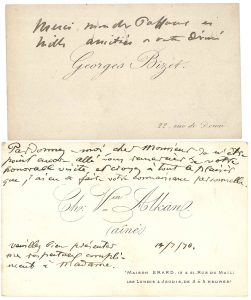 Merci
amitiés à
Georges Bizet.
22, rue de Douai
Pardonnez-moi cher Monsieur de n'être
point encore allé vous remercier de votre
honorable visite et croyez à tout le plaisir
que j'ai eu de faire votre connaissance personnelle
Ch: Vin Alkan
(aîné)
veuillez bien présenter
mes respectueux compli-
ments à Madame.
"MAISON ERARD, 13 & 21, RUE DU MAIL)
LES LUNDIS & JEUDIS, DE 3 À 5 HEURES"